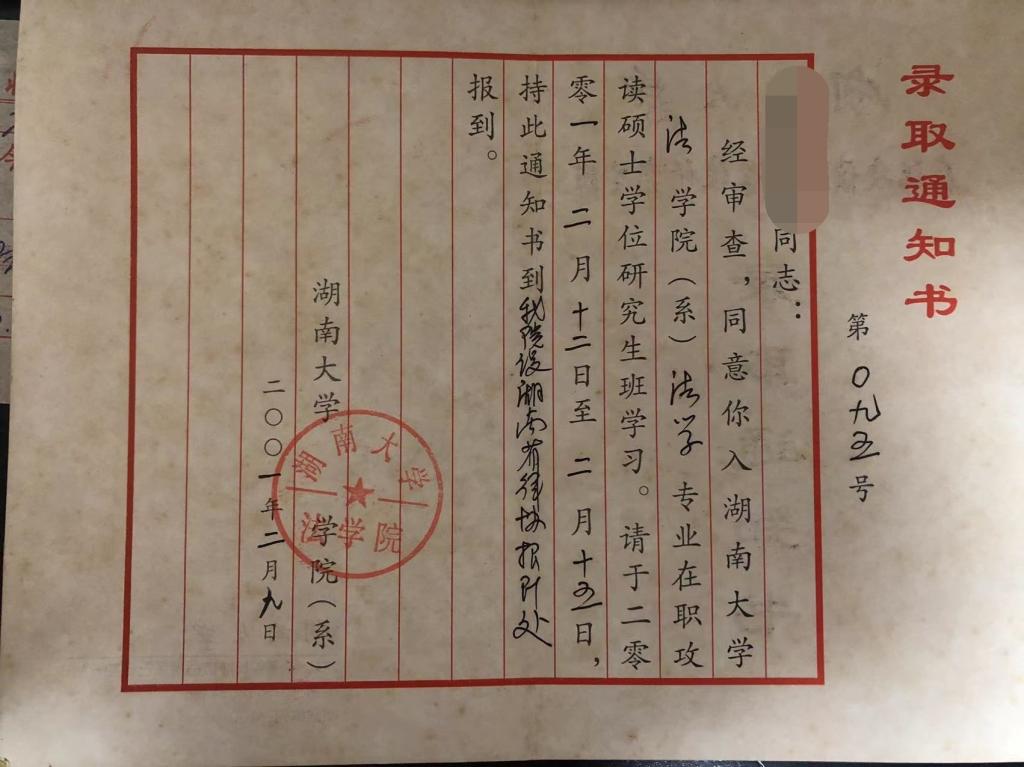 录取通知书
第〇九五号
同志：
经审查，同意你入湖南大学
法学院（系）法学专业在职攻
读硕士学位研究生班学习。请于二零
零一年二月十二日至二月十五日，
持此通知书到我院设湖南省律协报到处
报到。
湖南大学 学院（系）
二〇〇一年二月九日
湖南大学
法学院